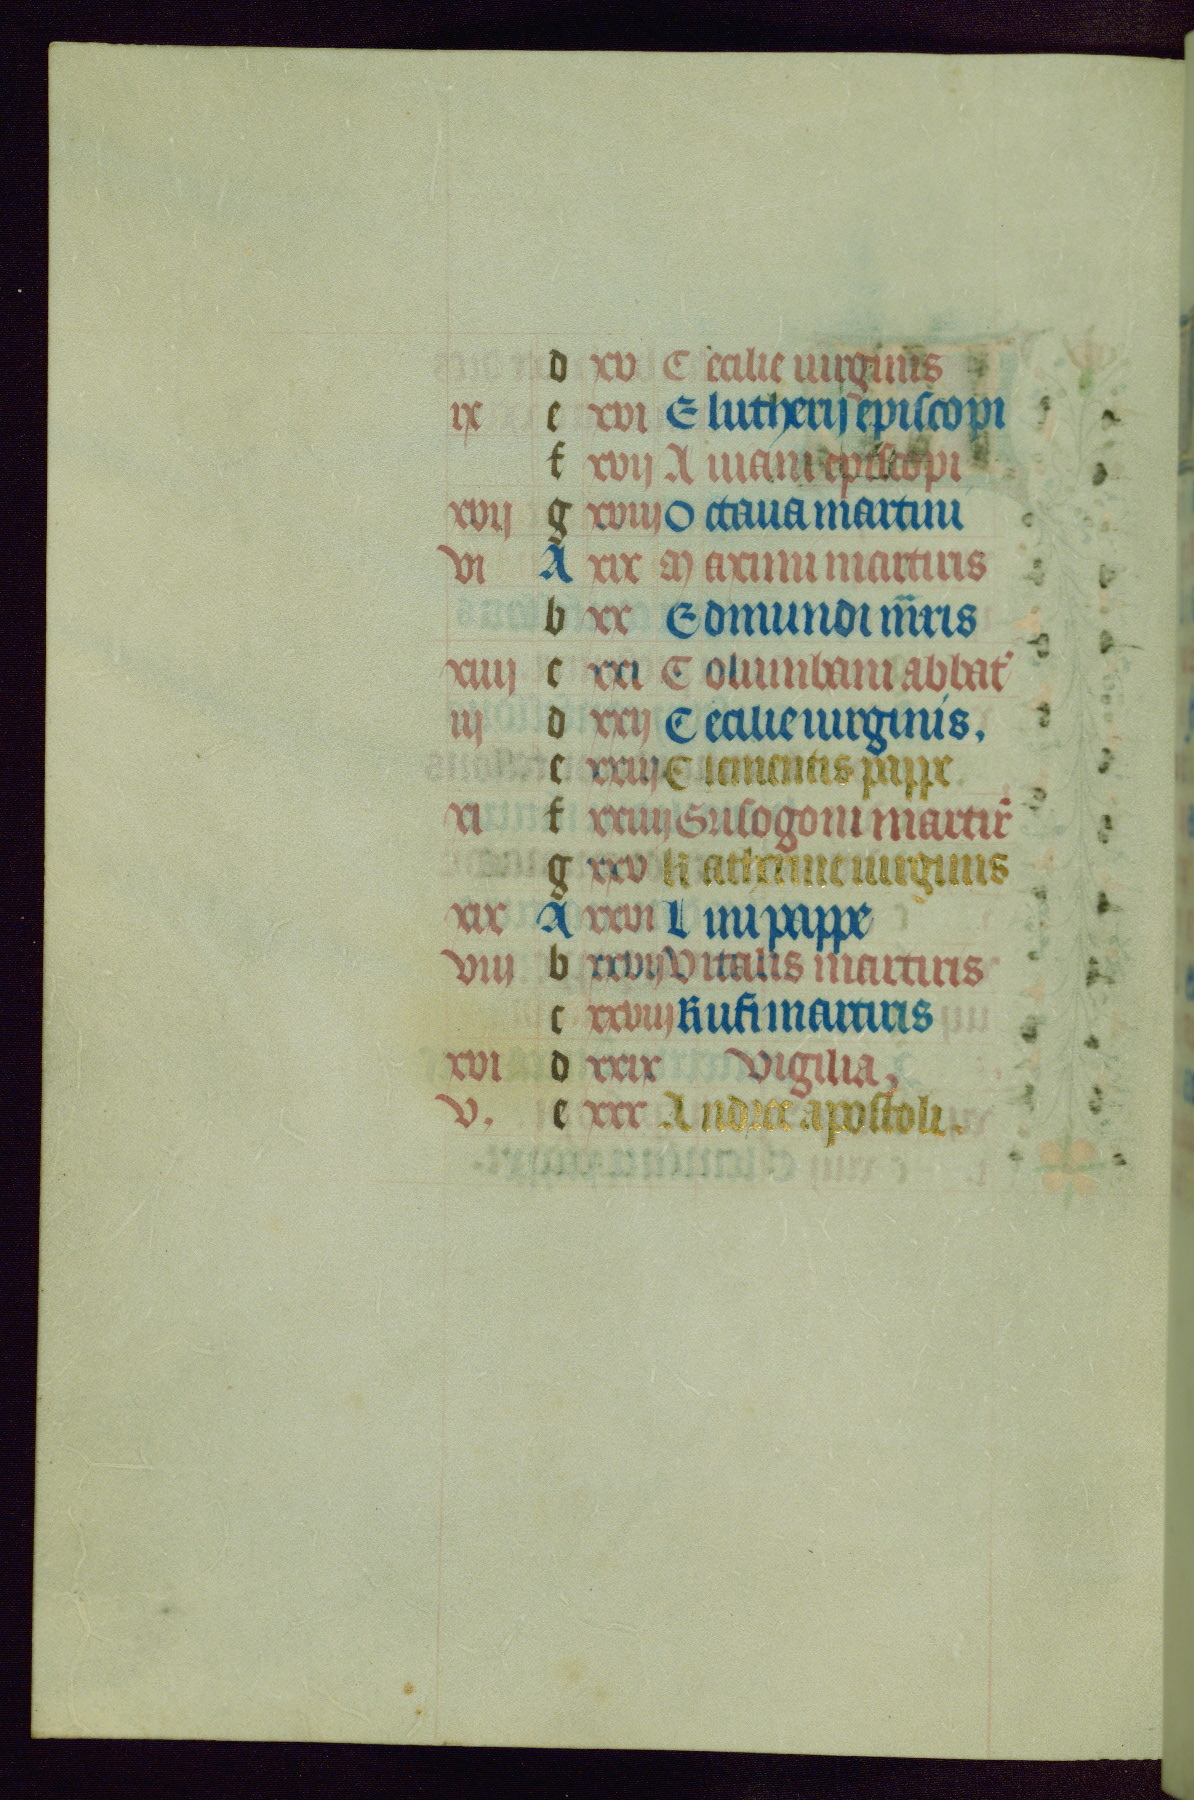 d xv Cecilie uirginis
ix e xvi Elutherij episcopi
f xvij Aniani episcopi
xvij g xviij Octaua martini
vi A xix Maximi martiris
b xx Edmundi mr̄is
xiiij c xxi Columbani abbat'
iij d xxij Cecilie uirginis.
e xxiij Clementis pappe
xi f xxiiij Grisogoni martir'
g xxv Katherine uirginis
xix A xxvi Lini pappe
viij b xxvij Vitalis martiris
c xxviij Rufi martiris
xvi d xxix Vigilia.
v. e xxx Andree apostoli.